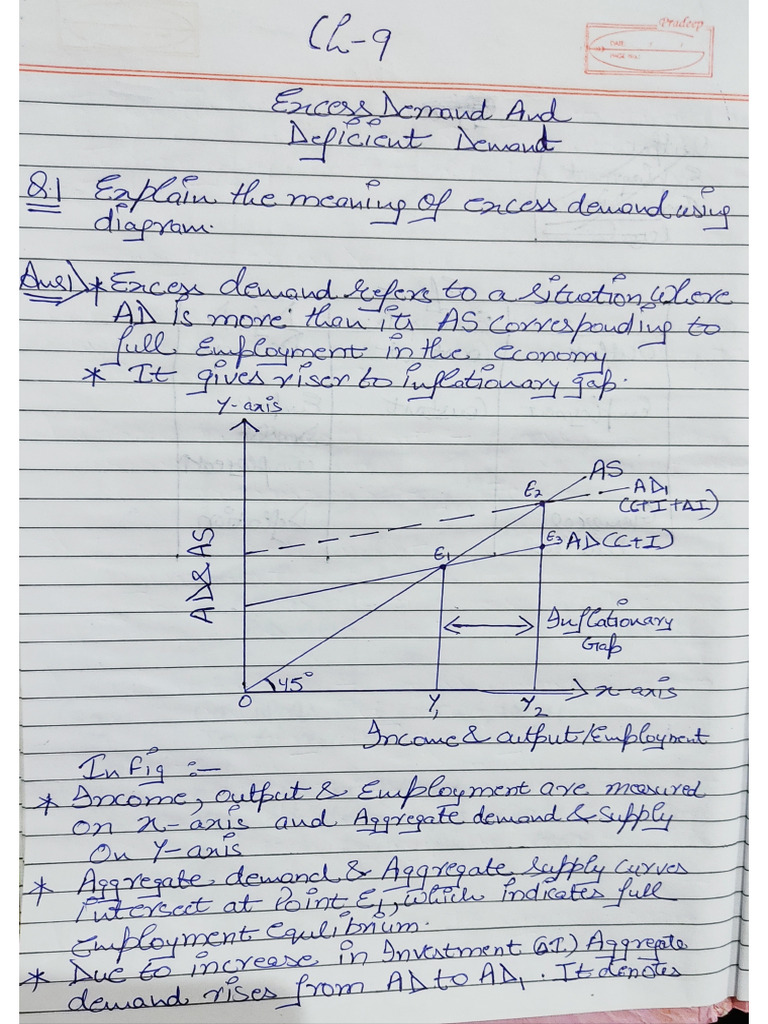 Ch-9
Pradeep
DATE: / /
PAGE NO.:
Excess Demand And
Deficient Demand
Q.1 Explain the meaning of excess demand using
diagram.
Ans1) * Excess demand refers to a situation, where
AD is more than its AS corresponding to
full Employment in the economy
* It gives riser to inflationary gap.
Y-axis
AS
E2
AD1
(C+I+ΔI)
E3 AD(C+I)
E1
AD & AS
Inflationary
Gap
45°
O
Y1
Y2
x-axis
Income & output/Employment
In fig :-
* Income, output & Employment are measured
on x-axis and Aggregate demand & Supply
On Y-axis
* Aggregate demand & Aggregate supply curves
intersect at Point E1, which indicates full
employment equlibrium.
* Due to increase in Investment (ΔI) Aggregate
demand rises from AD to AD1. It denotes